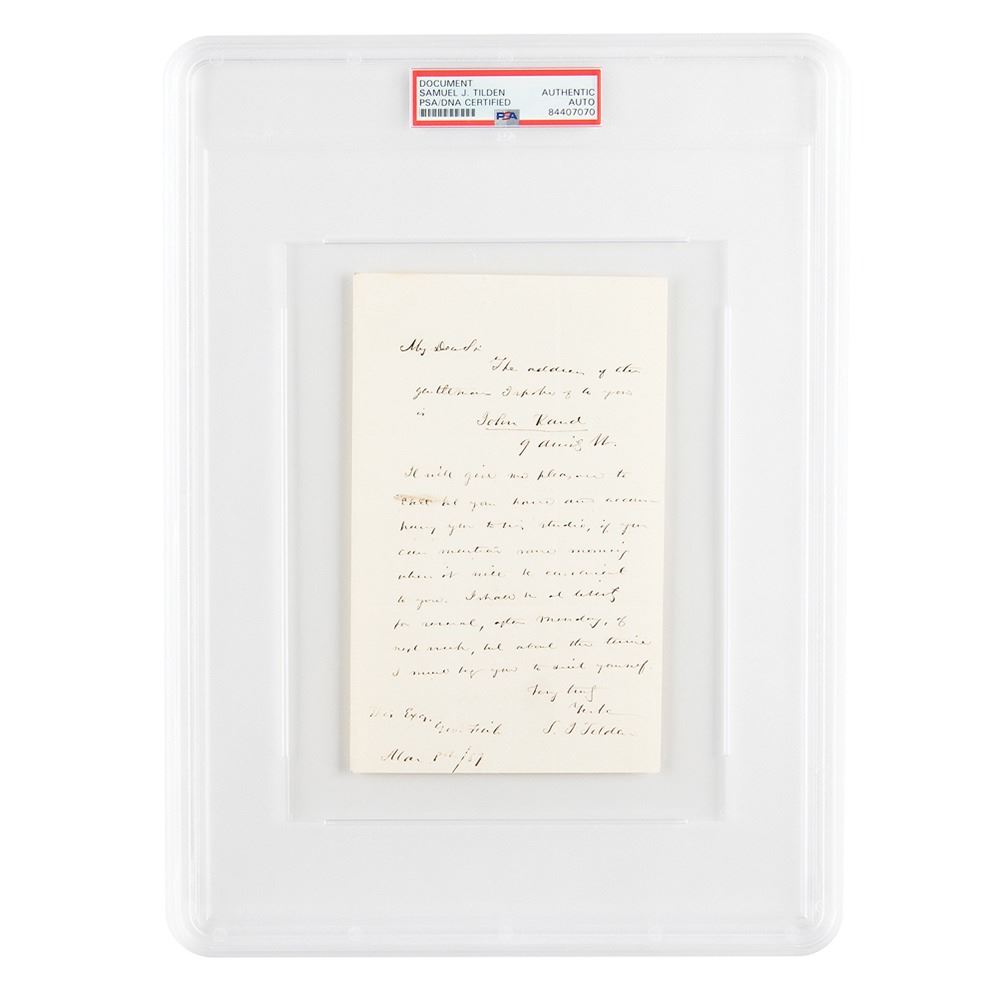 DOCUMENT
SAMUEL J. TILDEN
PSA/DNA CERTIFIED
AUTHENTIC
AUTO
84407070
PSA
My Dear Sir
The address of the
gentleman I spoke of to you
is
John Rand
9
It will give me pleasure to
call at you house and accom
pany you to his studio, if you
can mention some morning
when it will be convenient
to you. I shall be at liberty
for several, after Monday, of
next week, but about the time
I must beg you to suit yourself.
Very truly
Yours
S. J. Tilden
His Exy.
Gov. Fish
Mar